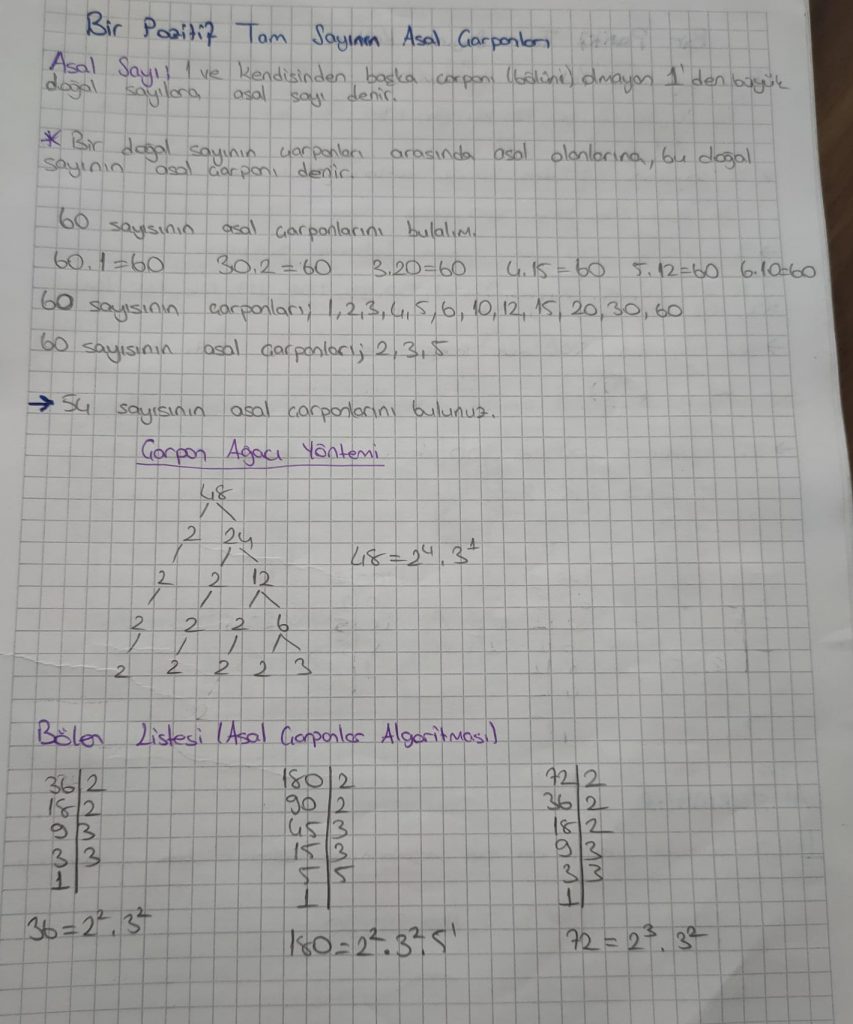 Bir Pozitif Tam Sayının Asal Çarpanları
Asal Sayı; 1 ve kendisinden başka çarpanı (böleni) olmayan 1'den büyük
doğal sayılara asal sayı denir.
* Bir doğal sayının çarpanları arasında asal olanlarına, bu doğal
sayının asal çarpanı denir.
60 sayısının asal çarpanlarını bulalım.
60.1=60 30.2=60 3.20=60 4.15=60 5.12=60 6.10=60
60 sayısının çarpanları; 1,2,3,4,5,6,10,12,15,20,30,60
60 sayısının asal çarpanları; 2,3,5
→ 54 sayısının asal çarpanlarını bulunuz.
Çarpan Ağacı Yöntemi
48
2 24
48=2⁴.3¹
2 2 12
2 2 2 6
2 2 2 2 3
Bölen Listesi (Asal Çarpanlar Algoritması)
36|2 180|2 72|2
18|2 90|2 36|2
9|3 45|3 18|2
3|3 15|3 9|3
1| 5|5 3|3
1| 1|
36=2².3²
180=2².3².5¹ 72=2³.3²